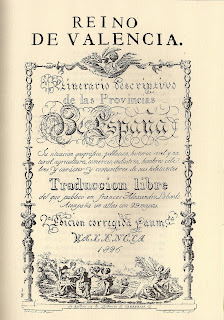 REINO
DE VALENCIA.
Itinerario descriptivo
de las Provincias
De España
Su situacion geográfica, poblacion, historia civil y na-
tural, agricultura, comercio, industria, hombres céle-
bres y carácter y costumbres de sus habitantes
Traduccion libre
del que publicó en frances Alexandro Laborde
Acompaña un atlas con 29 mapas.
Edicion corregida
VALENCIA